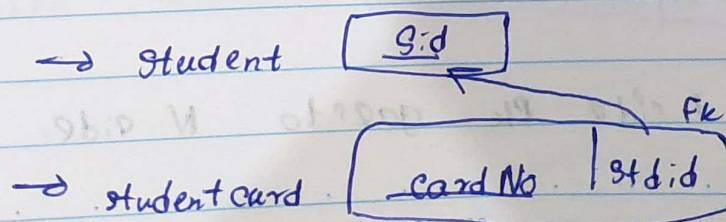 → student Sid
FK
→ student card card No stdid